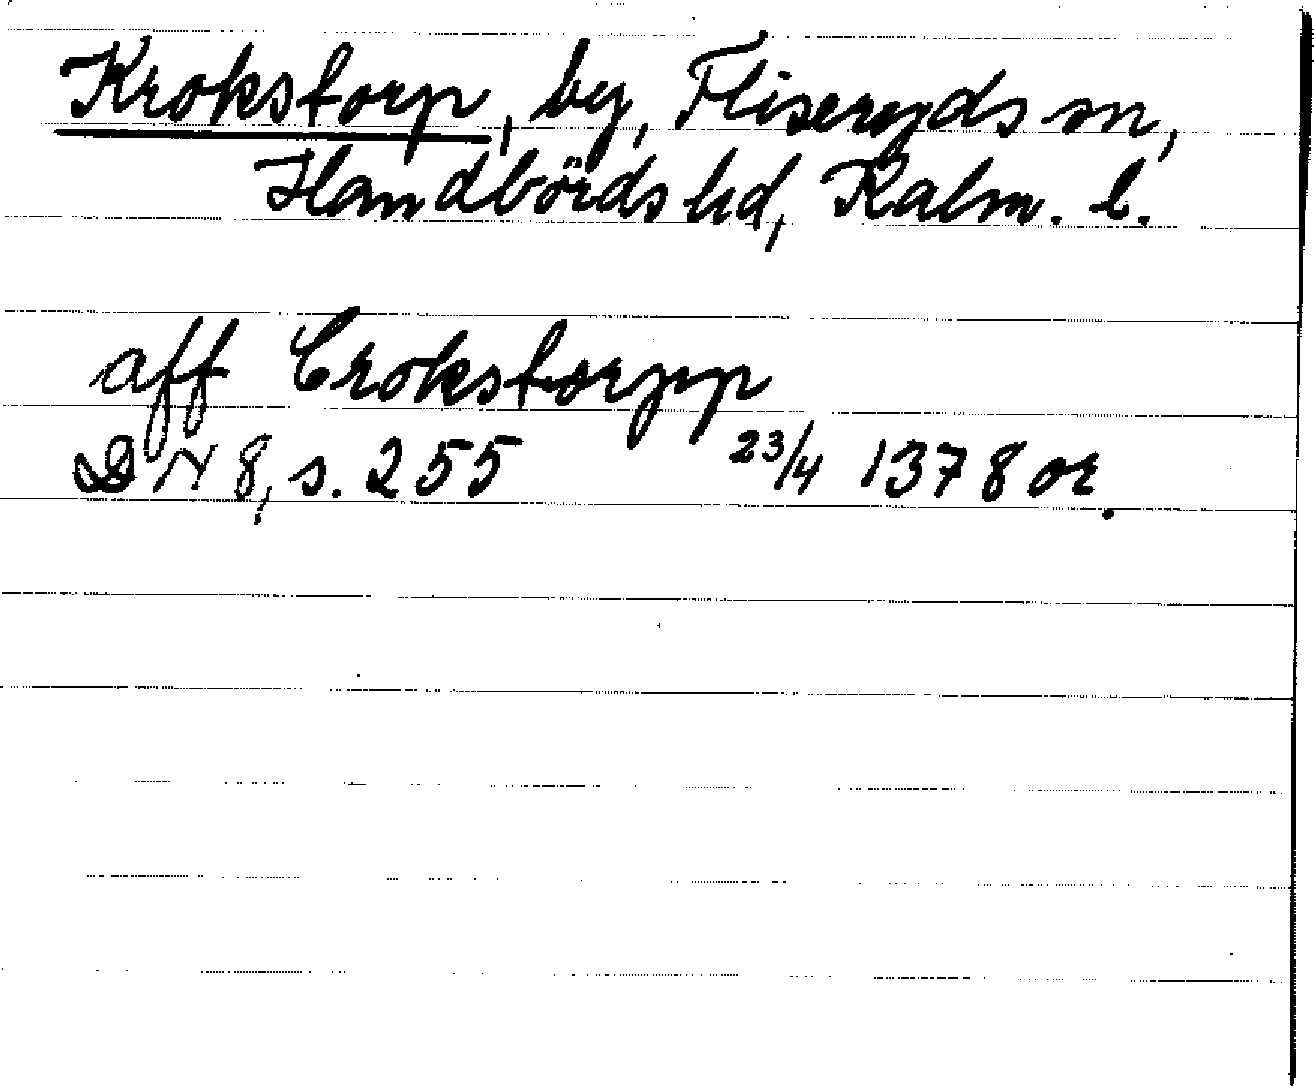 Krokstorp, by, Fliseryds sn,
Handbörds hd, Kalm. l.
aff Crokstorpp
DN 8, s. 255 23/4 1378 or.